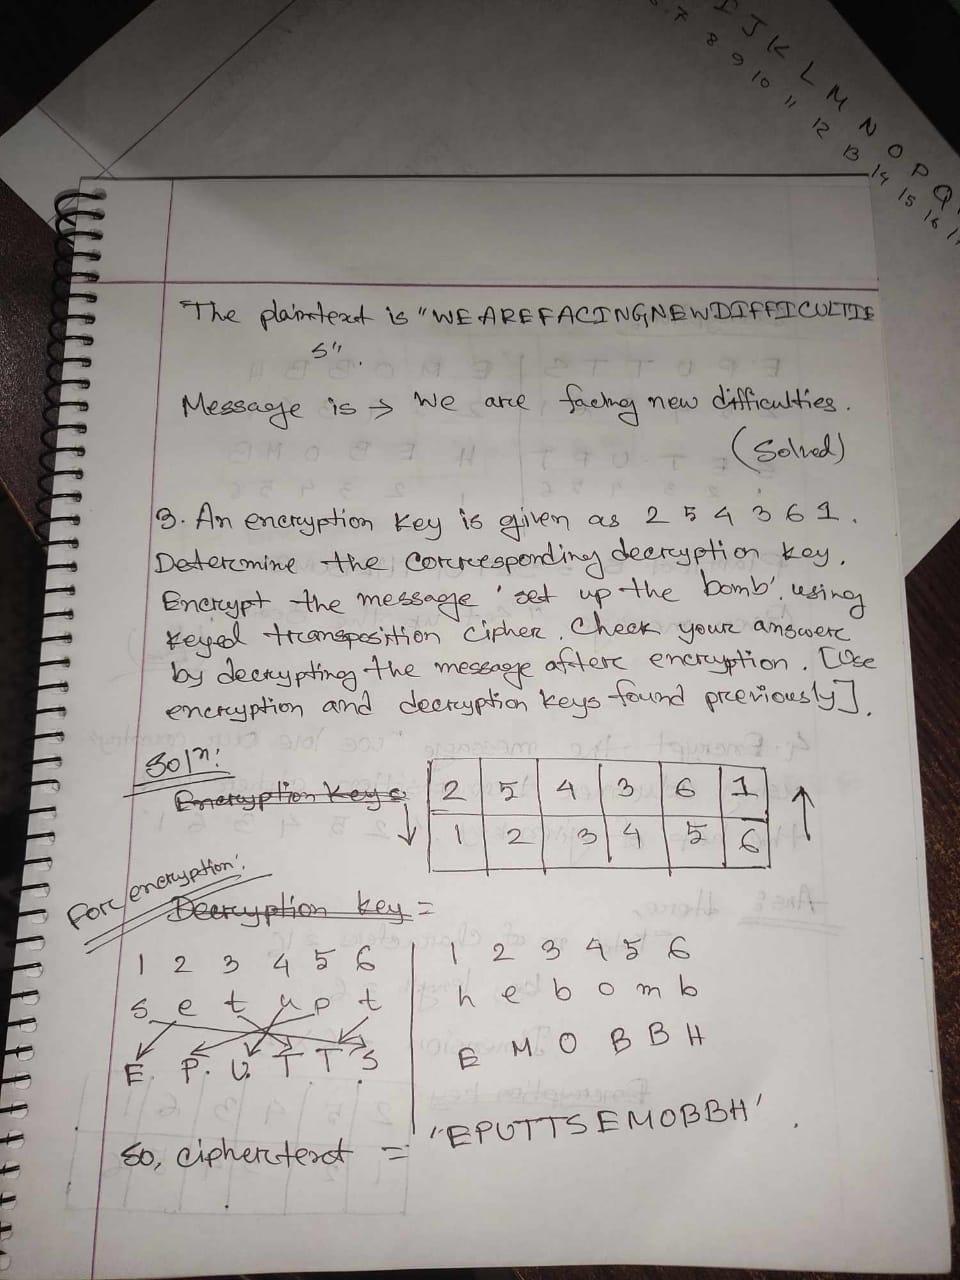 I J K L M N O P Q
7 8 9 10 11 12 13 14 15 16
The plaintext is "WEAREFACINGNEWDIFFICULTIE
S".
Message is → We are facing new difficulties.
(Solved)
3. An encryption key is given as 2 5 4 3 6 1.
Determine the corresponding decryption key.
Encrypt the message 'set up the bomb' using
keyed transposition cipher. Check your answer
by decrypting the message after encryption. [Use
encryption and decryption keys found previously].
Soln:
Encryption key
2 5 4 3 6 1
↓ ↑
1 2 3 4 5 6
For encryption:
Decryption key =
1 2 3 4 5 6 1 2 3 4 5 6
s e t u p t h e b o m b
E. P. U. T T S E M O B B H
So, ciphertext = "EPUTTSEMOBBH'.